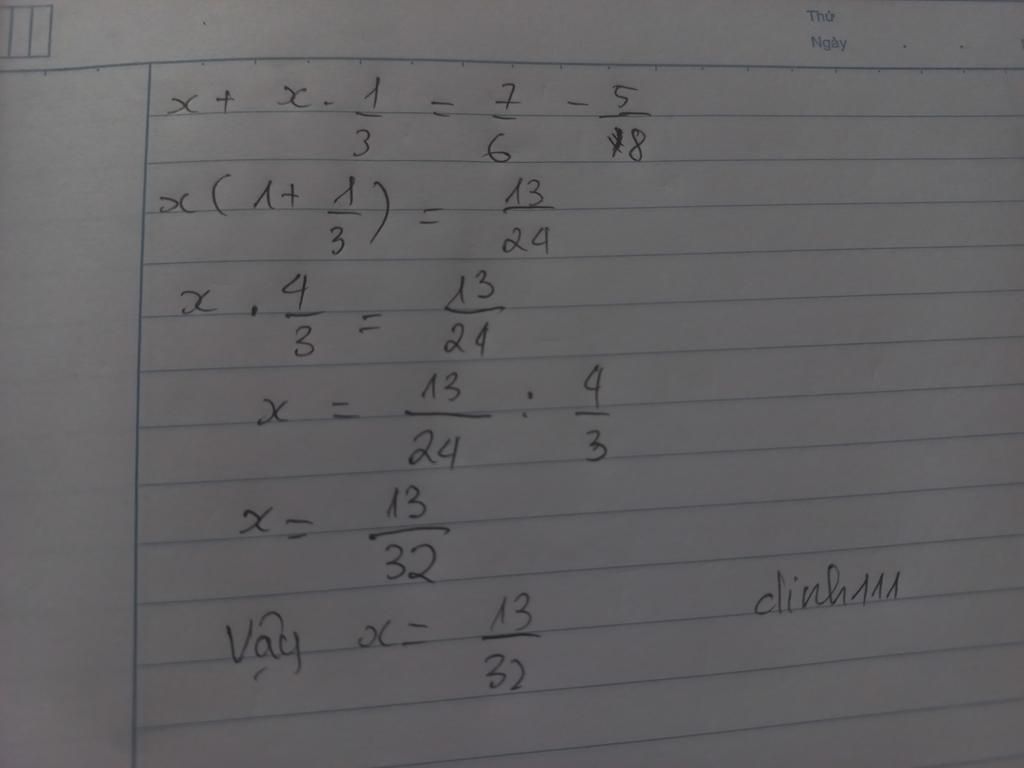 Thứ
Ngày
x + x . 1/3 = 7/6 - 5/8
x(1 + 1/3) = 13/24
x . 4/3 = 13/24
x = 13/24 : 4/3
x = 13/32
Vậy x = 13/32
dinh111